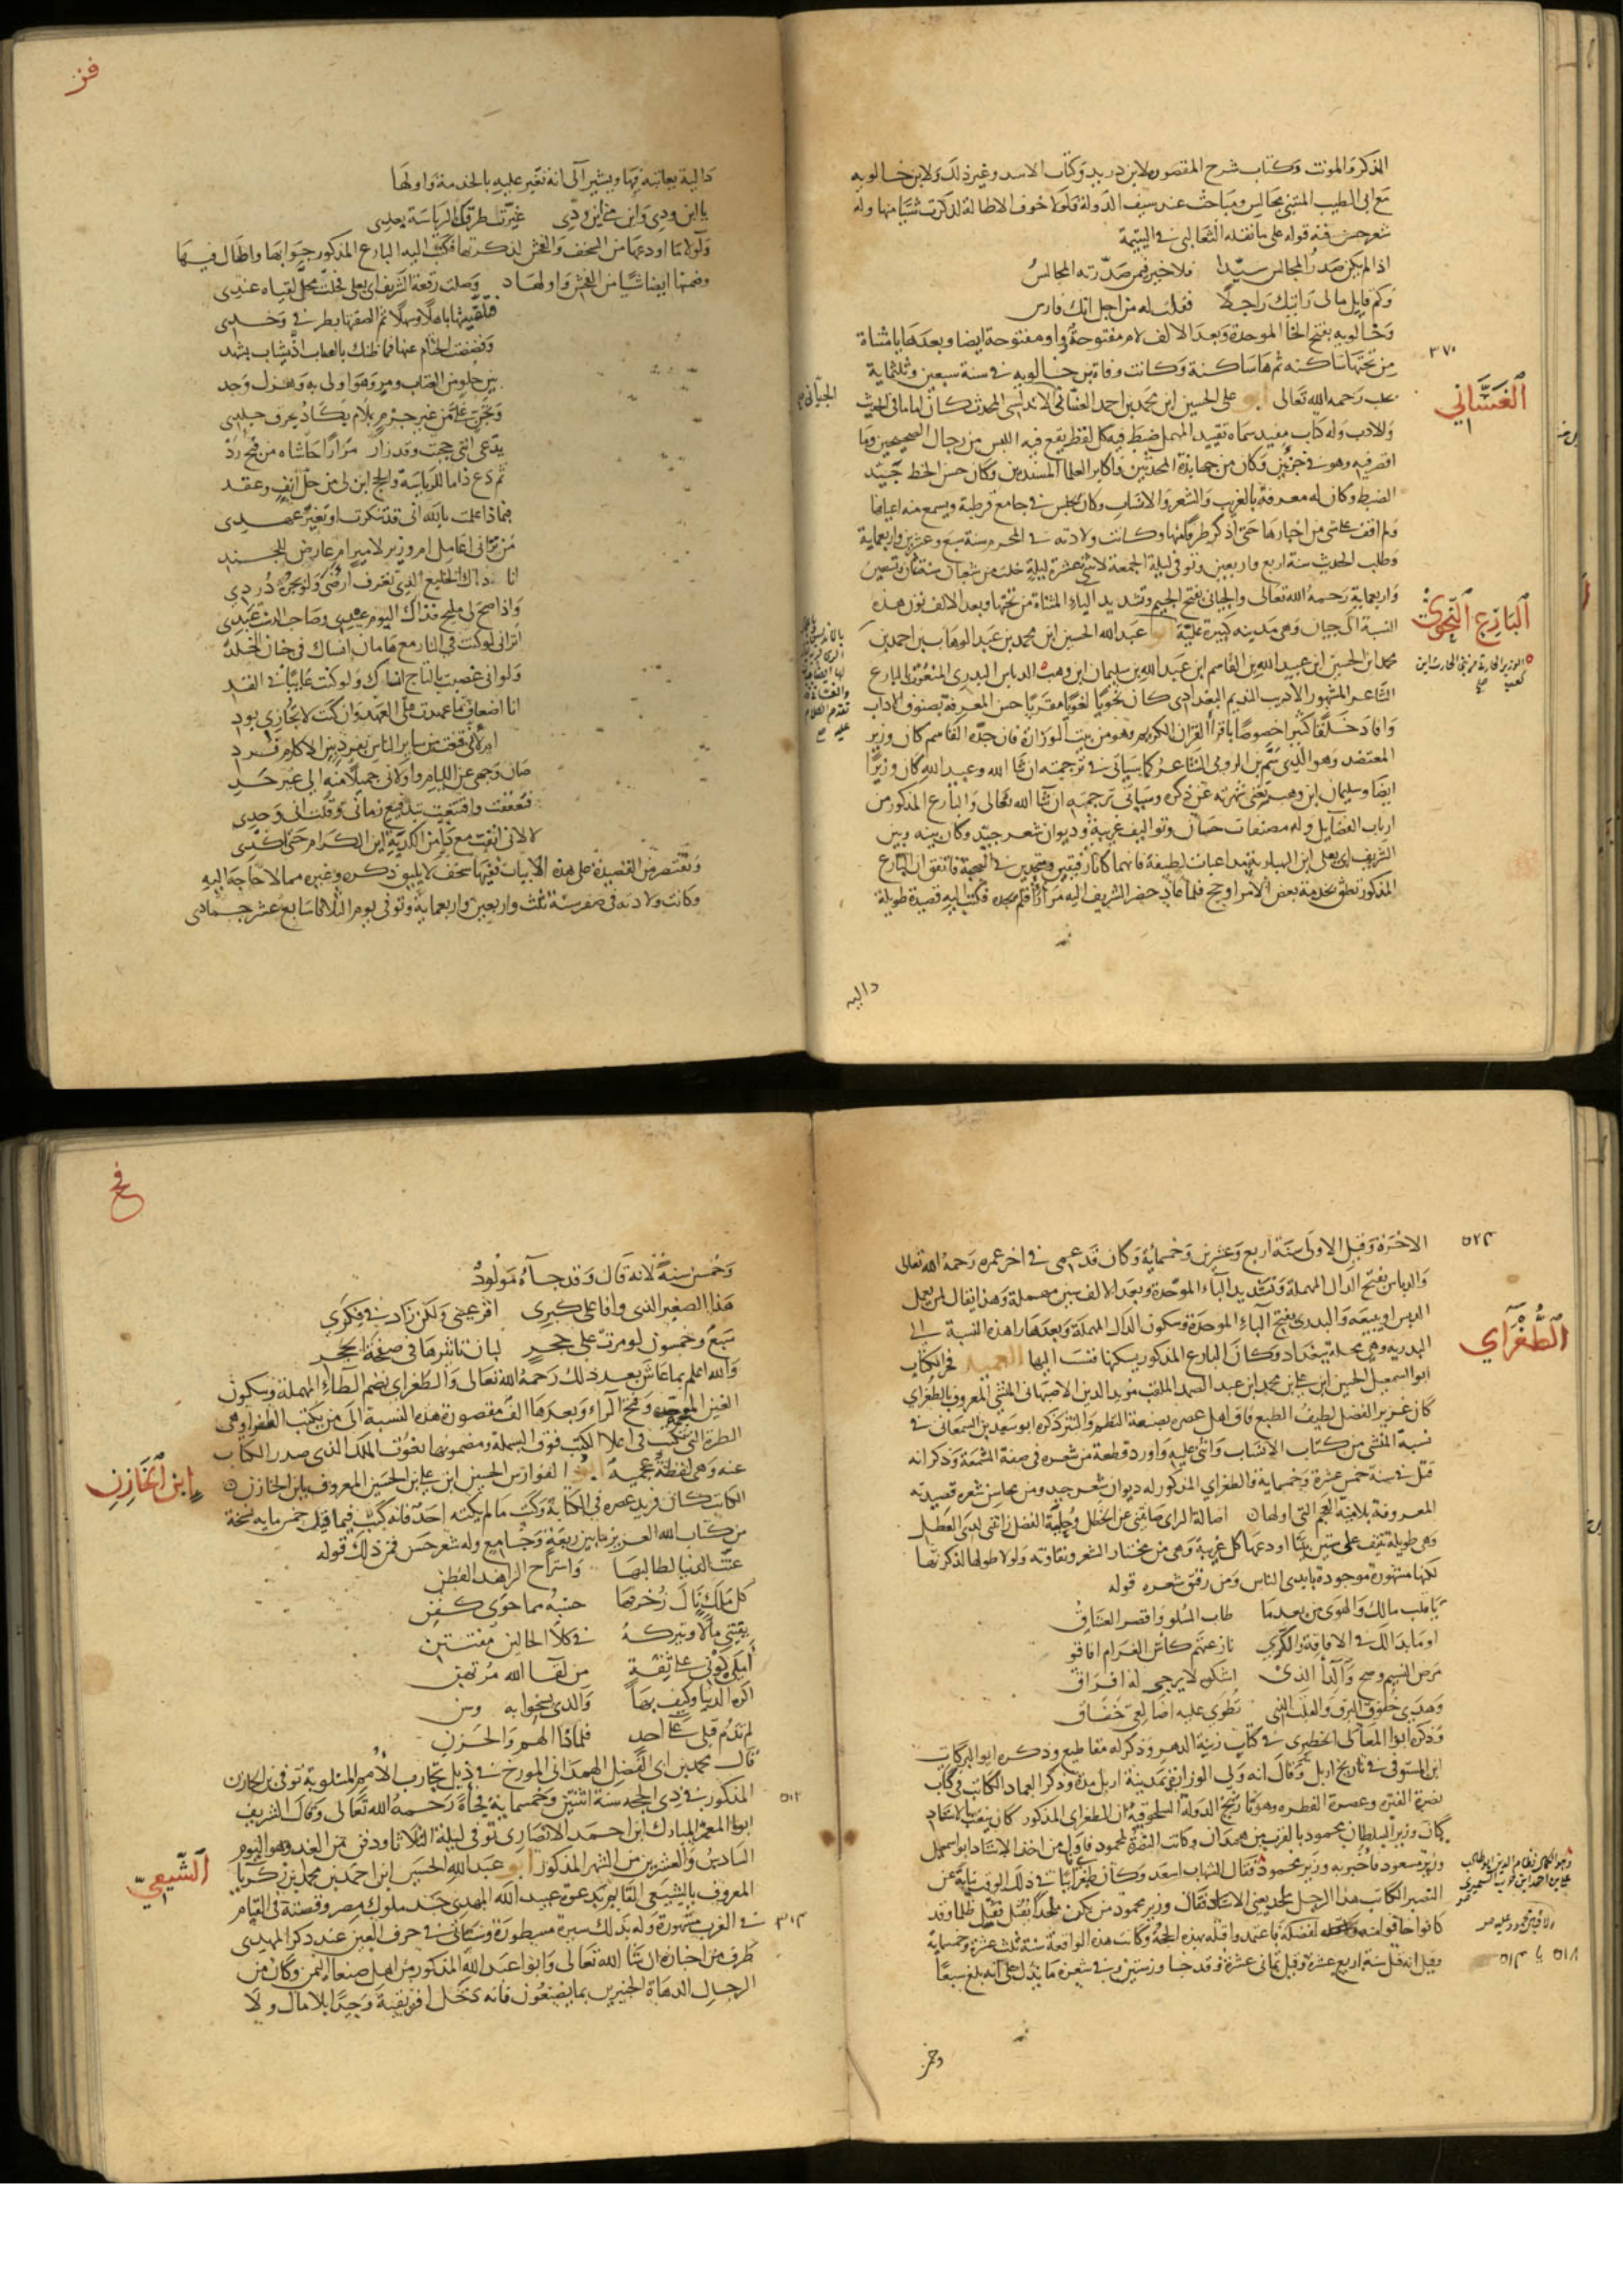 الذكر والمونث وكتاب شرح المقصورة لابن دريد وكتاب الاسد وغير ذلك ولابن خالويه
مع ابي الطيب المتنبي مجالس ومباحث عند سيف الدولة ولولا خوف الاطالة لذكرت شيا منها وله
شعر حسن فمنه قوله على ما نقله الثعالبي في اليتيمة
اذا لم يكن صدر المجالس سيدا فلا خير فيمن صدرته المجالس
وكم قايل مالي رايتك راجلا فقلت له من اجل انك فارس
وخالويه بفتح الخا الموحدة وبعد الالف لام مفتوحة وواو مفتوحة ايضا وبعدها يا مثناة
٣٧٠
من تحتها ساكنه ثم ها ساكنة وكانت وفاة بن خالويه في سنة سبعين وثلثماية
الغساني
بحلب رحمه الله تعالى ابو على الحسين ابن محمد بن احمد الغساني الاندلسي المحدث كان اماما في الحديث
الجياني
والادب وله كتاب مفيد سماه تقييد المهمل ضبط فيه كل لفظ يقع فيه اللبس من رجال الصحيحين وما
اقصر فيه وهو في جزئين وكان من جهابذة المحدثين واكابر العلما المسندين وكان حسن الخط جيد
الضبط وكان له معرفة بالغريب والشعر والانساب وكان يجلس في جامع قرطبة ويسمع منه اعيانها
ولم اقف على شي من اخبارها حتى اذكر طرفا منها وكانت ولادته في المحرم سنة سبع وعشرين واربعماية
وطلب الحديث سنة اربع واربعين وتوفي ليلة الجمعة لاثنتي عشرة ليلة خلت من شعبان سنة ثمان وتسعين
واربعماية رحمه الله تعالى والجياني بفتح الجيم وتشديد الياء المثناة من تحتها وبعد الالف نون هذه
البارع النحوي
النسبة الى جيان وهي مدينه كبيرة عليه ابو عبد الله الحسين ابن محمد بن عبد الوهاب بن احمد بن
محمد ابن الحسين ابن عبيد الله بن القاسم ابن عبد الله بن سليمان ابن وهب الدباس البدري المنعوت بالبارع
الشاعر المشهور الاديب النديم البغدادي كان نحويا لغويا مقريا حسن المعرفة بصنوف الاداب
وافاد خلقا كثيرا خصوصا باقرا القران الكريم وهو من بيت الوزارة فان جده القاسم كان وزير
المعتضد وهو الذي سم بن الرومي الشاعر كما سياتي في ترجمته ان شا الله وعبيد الله كان وزيرا
ايضا وسليمان ابن وهب تغني شهرته عن ذكره وسياتي ترجمته ان شا الله تعالى والبارع المذكور من
ارباب الفضايل وله مصنفات حسان وتواليف غريبة وديوان شعر جيد وكان بينه وبين
الشريف ابي يعلى ابن الهبارية مداعبات لطيفة فانهما كانا رفيقين ومتحدين في الصحبة فاتفق ان البارع
المذكور تعلق بخدمة بعض الامرا وحج فلما عاد حضر الشريف اليه مرارا فلم يجده فكتب اليه قصيدة طويلة
داليه
فز
دالية يعاتبه فيها ويشير الى انه تغير عليه بالخدمة واولها
يا ابن ودي واين مني ابن ودي غيرت طرقك الرياسة بعدي
ولولا ما اودعها من السخف والفحش لذكرتها فكتب اليه البارع المذكور جوابها واطال فيها
وضمنها ايضا شيا من الفحش واولها وصلت رقعة الشريف ابي يعلى فحلت محل لقياه عندي
فتلقيتها باهلا وسهلا ثم الصقتها بطرفي وخدي
وفضضت الختام عنها فما ظنك بالصاب اذ يشاب بشهد
بين حلو من العتاب ومر وهو اولى به وهزل وجد
وتجن علي من غير جرم بملام يكاد يحرق جلدي
يدعى انني حججت وقد زار مرارا حاشاه من قبح رد
ثم دع ذاما للرياسة والحج ابن لي من حل انف وعقد
فبماذا علمت بالله اني قد تنكرت او تغير عهدي
من تراني اعامل ام وزير لامير ام عارض للجند
انا ذاك الخليع الذي تعرف ارضى ولو بجرة دردي
واذا صح لي مليح فذاك اليوم عيدي وصاحب الدست عبدي
اتراني لو كنت في النار مع هامان انساك في جنان الخلد
ولو اني عصبت بالتاج انساك ولو كنت عانيا في القد
انا اضعاف ما عهدت على العهد وان كنت لا تجازي بود
ام لاني قنعت من ساير الناس بفرد بين الاكارم فرد
صان وجهي عن اللئام واولاني جميلا منه الى غير حد
فتعففت واقتنعت بتدفيع زماني وقلت اني وحدي
لا لاني انفت مع ذا من الكدية اين الكرام حتى اكدي
ونقتصر من القصيدة على هذه الابيات ففيها سخف لا يليق ذكره وغيره مما لا حاجة اليه
وكانت ولادته في صفر سنة ثلث واربعين واربعماية وتوفي يوم الثلاثا سابع عشر جمادى
٥٢٤
الاخرة وقيل الاولى سنة اربع وعشرين وخمسماية وكان قد عمي في اخر عمره رحمه الله تعالى
والدباس بفتح الدال المهملة وتشديد الباء الموحدة وبعد الالف سين مهملة وهذا يقال لمن يعمل
الدبس او يبيعه والبدري بفتح الباء الموحدة وسكون الدال المهملة وبعدها را هذه النسبة الى
الطغراي
البدريه وهي محلة ببغداد وكان البارع المذكور يسكنها فنسب اليها العميد فخر الكتاب
ابو اسمعيل الحسين ابن علي بن محمد ابن عبد الصمد الملقب مؤيد الدين الاصبهاني المنشي المعروف بالطغراي
كان غزير الفضل لطيف الطبع فاق اهل عصره بصنعة النظم والنثر ذكره ابو سعيد بن السمعاني في
نسبة المنشي من كتاب الانساب واثنى عليه واورد قطعة من شعره في صفة الشمعة وذكر انه
قتل في سنة خمس عشرة وخمسماية والطغراي المذكور له ديوان شعر جيد ومن محاسن شعره قصيدته
المعروفة بلامية العجم التي اولها اصالة الراي صانتني عن الخطل وحلية الفضل زانتني لدى العطل
وهي طويلة تنيف على ستين بيتا اودعها كل غريبة وهي من مختار الشعر ونقاوته ولولا طولها لذكرتها
لكنها مشهورة موجودة بايدي الناس ومن رقيق شعره قوله
يا قلب مالك والهوى من بعد ما طاب السلو واقصر العشاق
اوما بدا لك في الافاقة والكرى نازعتهم كاس الغرام افاقو
مرض النسيم وصح والدا الذي اشكوه لا يرجى له افراق
وهدى خفوق البرق والقلب الذي تطوى عليه اضالعي خفاق
وذكره ابو المعالي الخطيري في كتاب زينة الدهر وذكر له مقاطيع وذكره ابو البركات
ابن المستوفي في تاريخ اربل وقال انه ولي الوزارة بمدينة اربل مدة وذكر العماد الكاتب في كتاب
نصرة الفترة وعصرة الفطره وهو تاريخ الدولة السلجوقية ان الطغراي المذكور كان ينعت بالاستاد
وكان وزير السلطان محمود بالقرب من همدان وكانت النصرة لمحمود فاول من اخذ الاستاد ابو اسمعيل
وزير مسعود فاخبر به وزير محمود فقال الشهاب اسعد وكان طغرائيا في ذلك الوقت نيابة عن
النصير الكاتب هذا الرجل ملحد يعني الاستاد فقال وزير محمود من يكن ملحدا يقتل فقتل ظلما وقد
كانوا خافوا منه لفضله فاعتمدوا قتله بهذه الحجة وكانت هذه الواقعة سنة ثلث عشرة وخمسماية
وقيل انه قتل سنة اربع عشرة وقيل ثماني عشرة وقد جاوز ستين وفي شعره ما يدل على انه بلغ سبعا
وخمـ
فح
وخمسين سنة لانه قال وقد جاءه مولود
هذا الصغير الذي وافا على كبري اقر عيني ولكن زاد في فكري
سبع وخمسون لو مرت على حجر لبان تاثيرها في صفحة الحجر
والله اعلم بما عاش بعد ذلك رحمه الله تعالى والطغراي بضم الطاء المهملة وسكون
الغين وفتح الراء وبعدها الف مقصورة هذه النسبة الى من يكتب الطغرا وهي
الطرة التي تكتب في اعلا الكتب فوق البسملة ومضمونها نعوت الملك الذي صدر الكتاب
ابن الخازن
عنه وهي لفظة عجمية ابو الفوارس الحسين ابن علي بن الحسين المعروف بابن الخازن
الكاتب كان فريد عصره في الكتابة وكتب ما لم يكتبه احد فانه كتب فيما قيل خمس مايه نسخة
من كتاب الله العزيز ما بين ربعة وجامع وله شعر حسن فمن ذلك قوله
عنت الدنيا لطالبها واستراح الزاهد الفطن
كل ملك نال زخرفها حسبه مما حوى كفن
يقتني مالا ويتركه في كلا الحالين مفتتن
املي كوني على ثقة من لقا الله مرتهن
اكره الدنيا وكيف بها والذي تسخوا به وسن
لم تدم قبلي على احد فلماذا الهم والحزن
قال محمد بن ابي الفضل الهمداني المورخ في ذيل تجارب الامم المتلوبة توفي بن الخازن
٥١٢
المذكور في ذي الحجه سنة اثنتين وخمسماية فجاة رحمه الله تعالى وقال الشريف
ابو المعمر المبارك ابن احمد الانصاري توفي ليلة الثلاثا ودفن من الغد وهو اليوم
الشيعي
السادس والعشرين من الشهر المذكور ابو عبد الله الحسين ابن احمد بن محمد بن زكريا
المعروف بالشيعي القايم بدعوة عبيد الله المهدي جد ملوك مصر وقصته في القيام
٣١٣
في الغرب مشهورة وله بذلك سيرة مسطورة وسياتي في حرف العين عند ذكر المهدي
طرف من اخباره ان شا الله تعالى وابو عبد الله المذكور من اهل صنعا اليمن وكان من
الرجال الدهاة الخبيرين بما يصنعون فانه دخل افريقية وحيدا بلا مال ولا